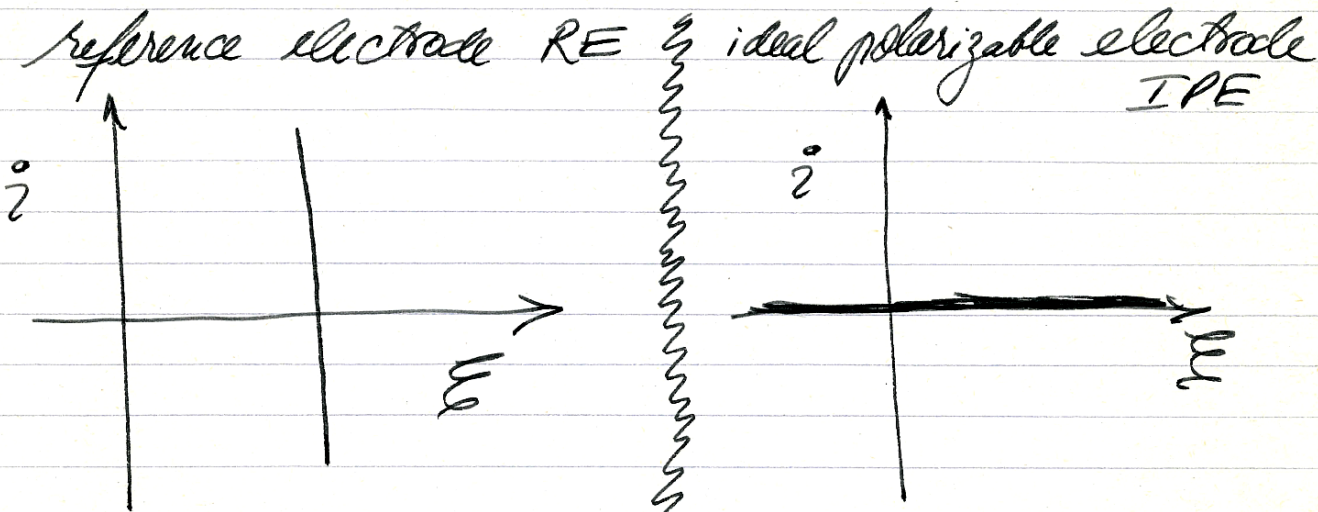 reference electrode RE
ideal polarizable electrode
IPE
i
ξ
i
ξ